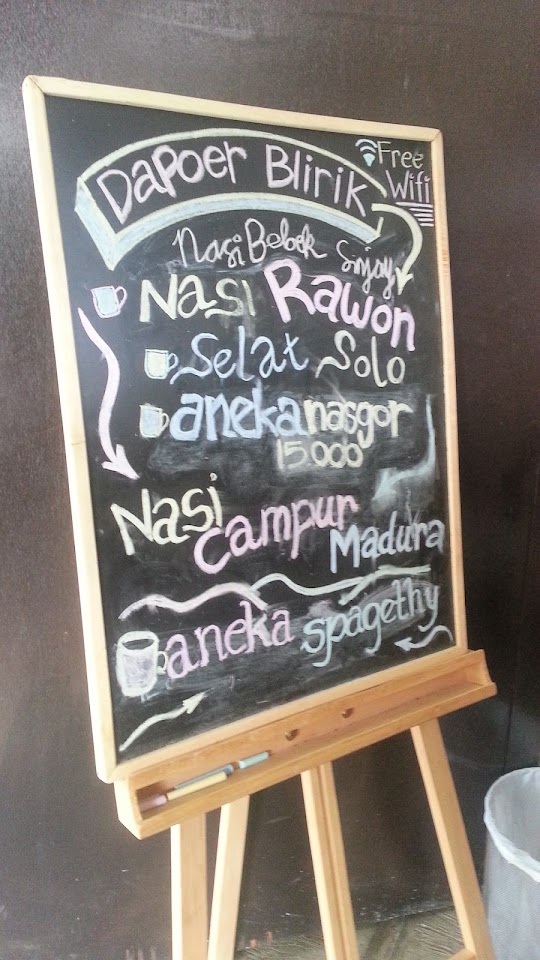 Dapoer Blirik
Free
Wifi
Nasi Bebek Sinjay
Nasi Rawon
Selat Solo
aneka nasgor
15.000
Nasi
campur
Madura
aneka spagethy